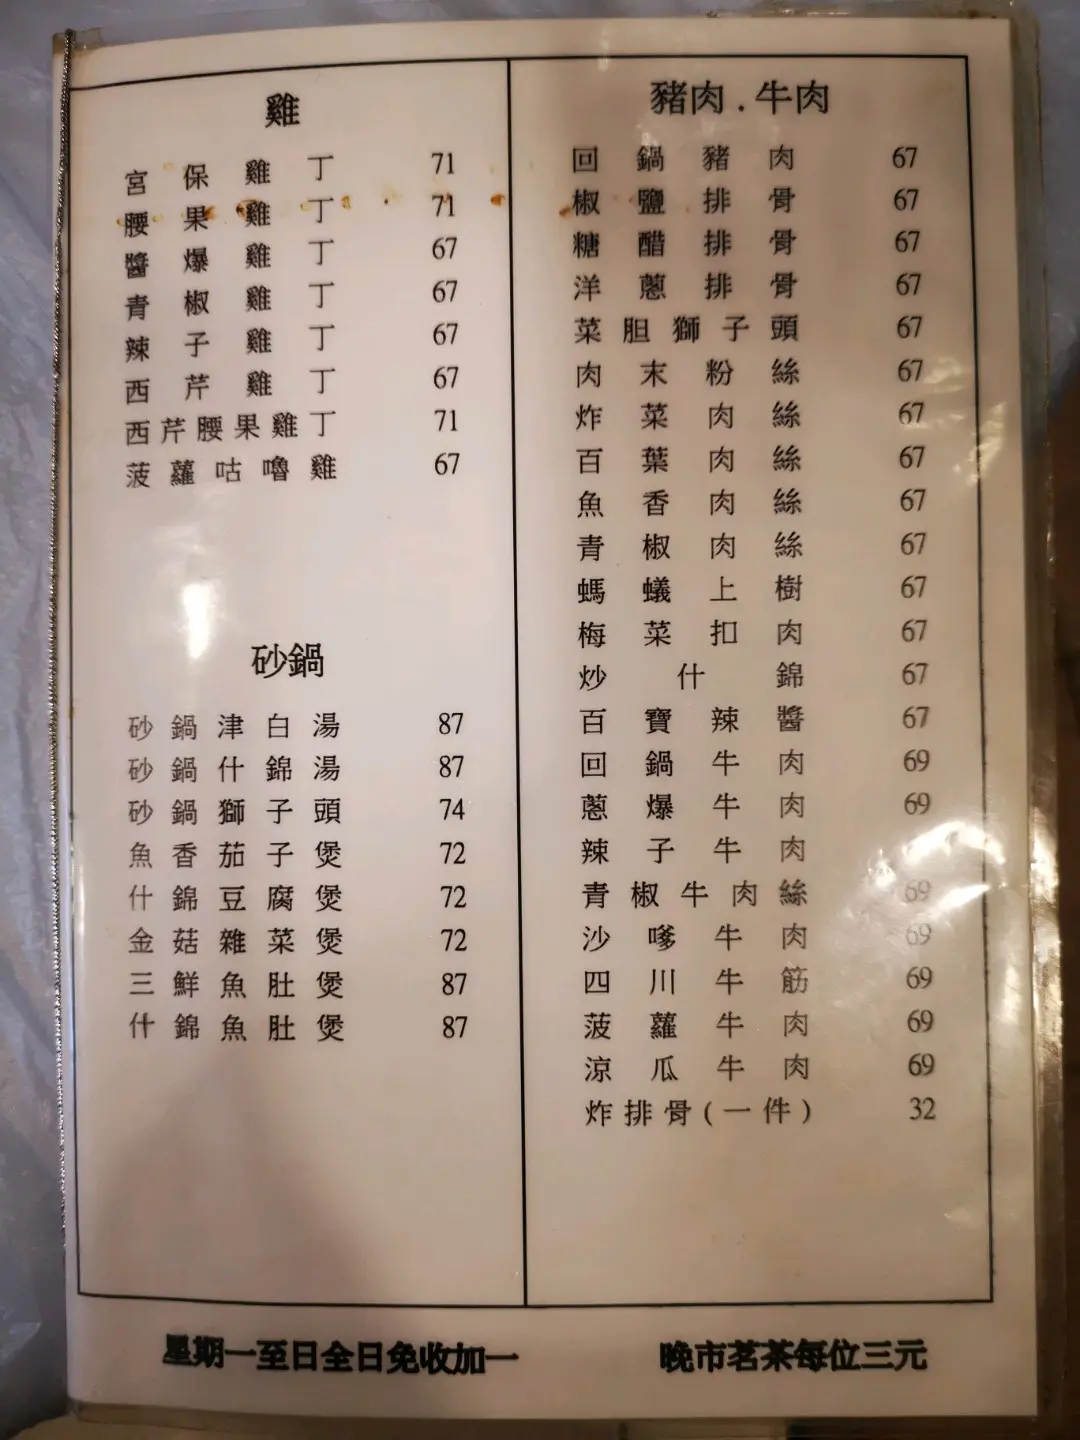 雞
宮保雞丁 71
腰果雞丁 71
醬爆雞丁 67
青椒雞丁 67
辣子雞丁 67
西芹雞丁 67
西芹腰果雞丁 71
菠蘿咕嚕雞 67
砂鍋
砂鍋津白湯 87
砂鍋什錦湯 87
砂鍋獅子頭 74
魚香茄子煲 72
什錦豆腐煲 72
金菇雜菜煲 72
三鮮魚肚煲 87
什錦魚肚煲 87
豬肉.牛肉
回鍋豬肉 67
椒鹽排骨 67
糖醋排骨 67
洋蔥排骨 67
菜胆獅子頭 67
肉末粉絲 67
炸菜肉絲 67
百葉肉絲 67
魚香肉絲 67
青椒肉絲 67
螞蟻上樹 67
梅菜扣肉 67
炒什錦 67
百寶辣醬 67
回鍋牛肉 69
蔥爆牛肉 69
辣子牛肉
青椒牛肉絲 69
沙嗲牛肉 69
四川牛筋 69
菠蘿牛肉 69
涼瓜牛肉 69
炸排骨(一件) 32
星期一至日全日免收加一
晚市茗茶每位三元